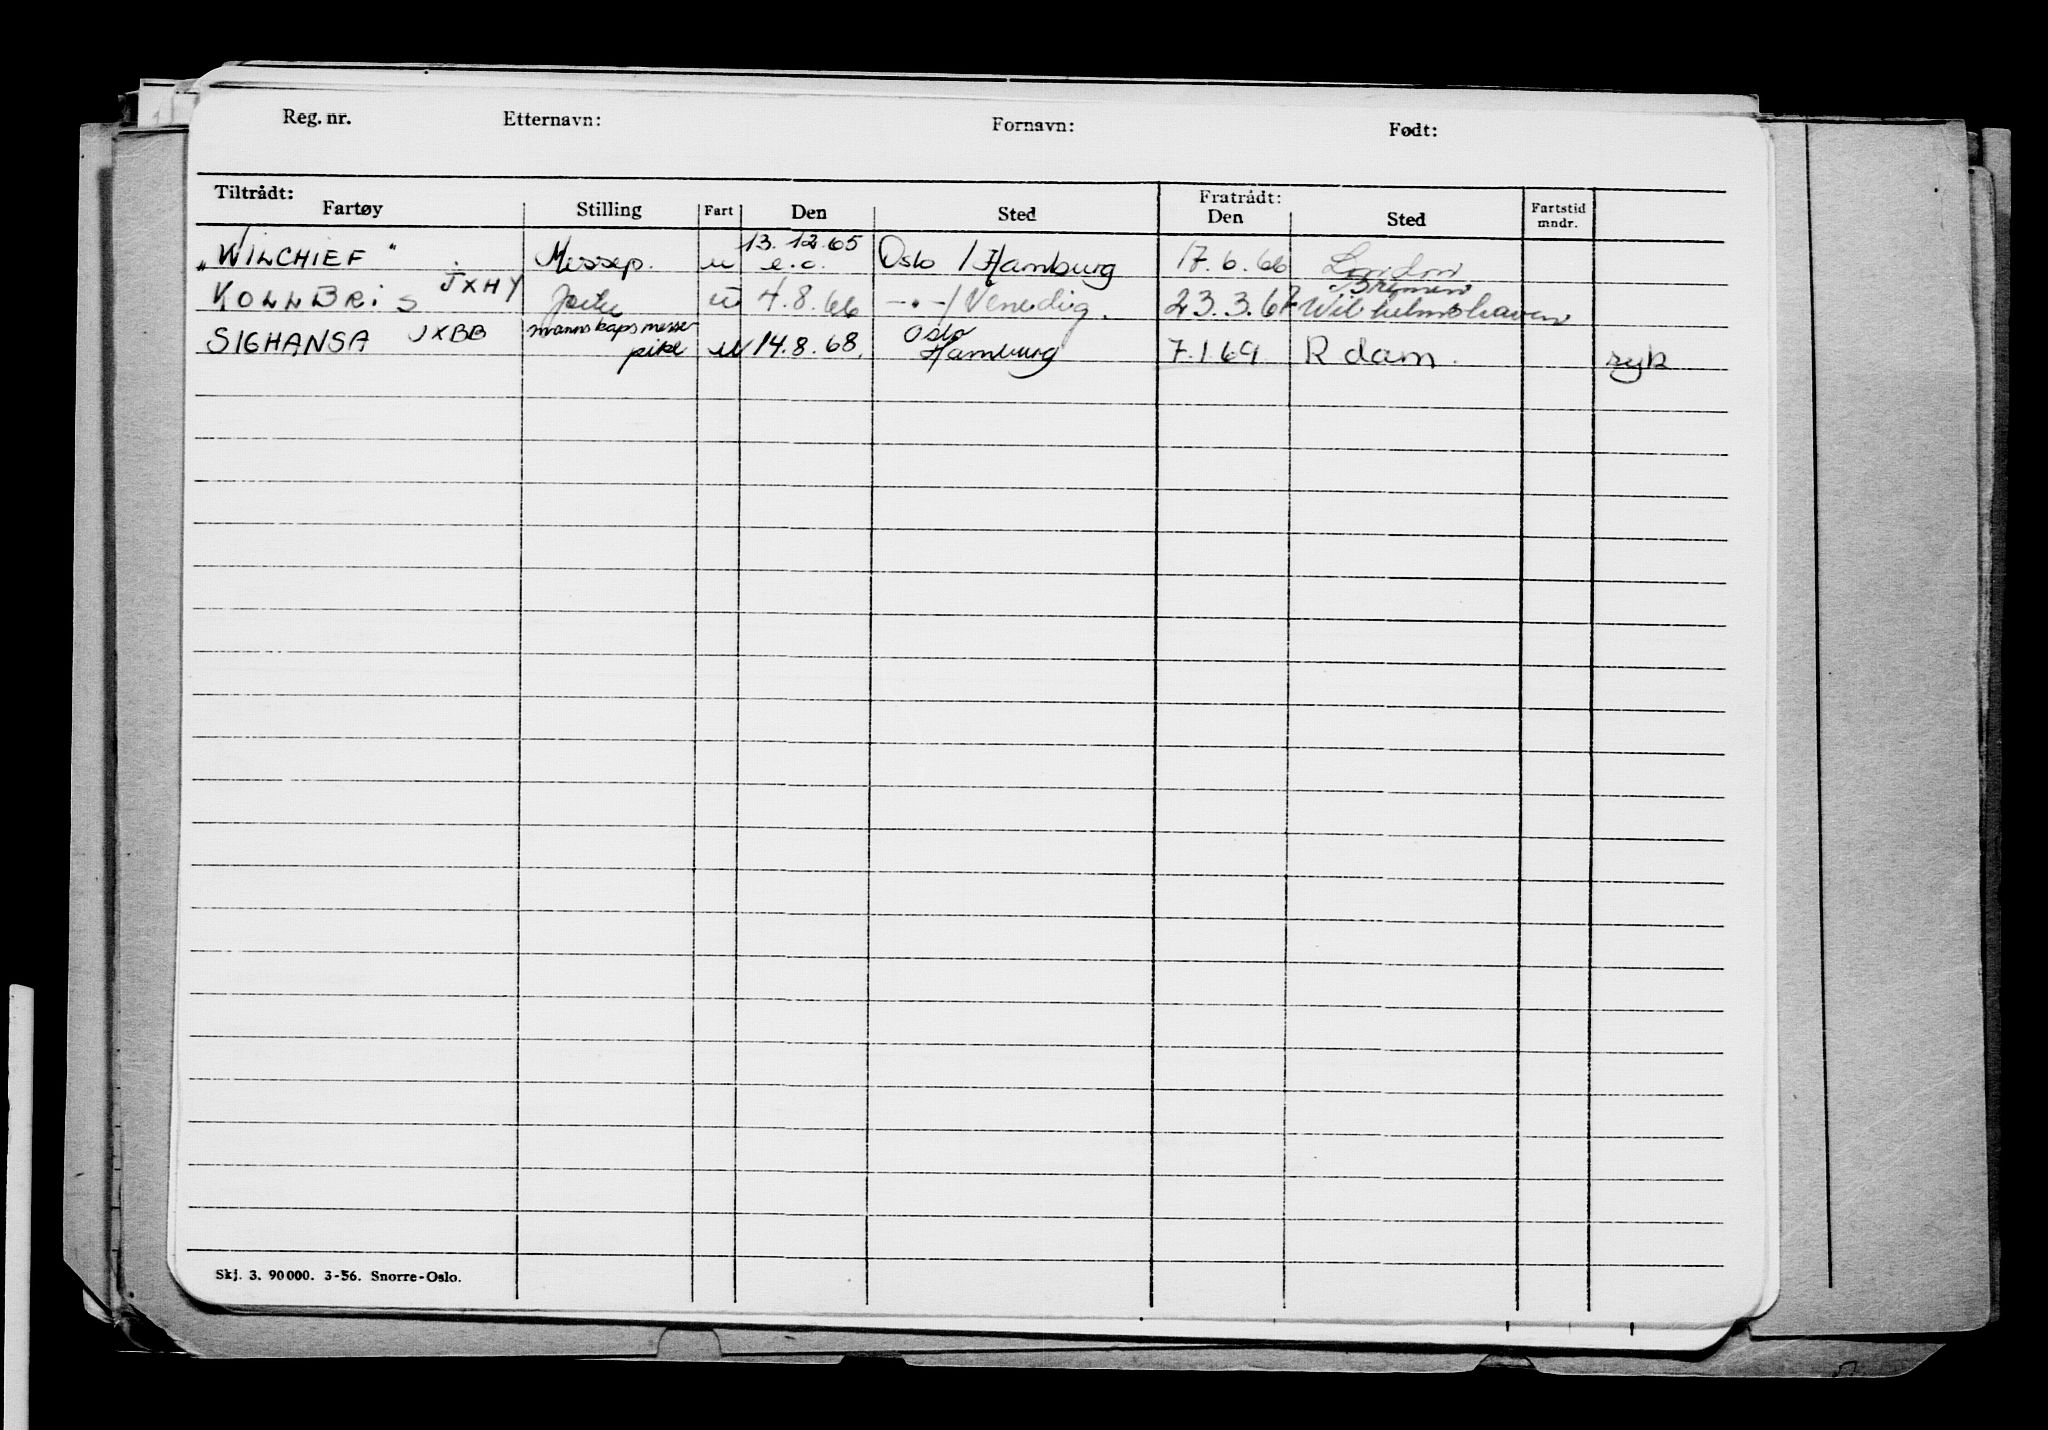 Reg. nr. Etternavn: Fornavn: Født:
Tiltrådt: Fratrådt:
Fartøy Stilling Fart Den Sted Den Sted Fartstid mndr.
„WILCHIEF" Messep. u 13.12.65 e.o. Oslo / Hamburg 17.6.66 London
KOLLBRIS JXHY u 4.8.66 —"—/ Venedig. 23.3.67 Bremen Wilhelmshaven
SIGHANSA JXBB mannskapsmesse pike u 14.8.68. Oslo Hamburg 7.1.69 R dam.
Skj. 3. 90000. 3-56. Snorre-Oslo.